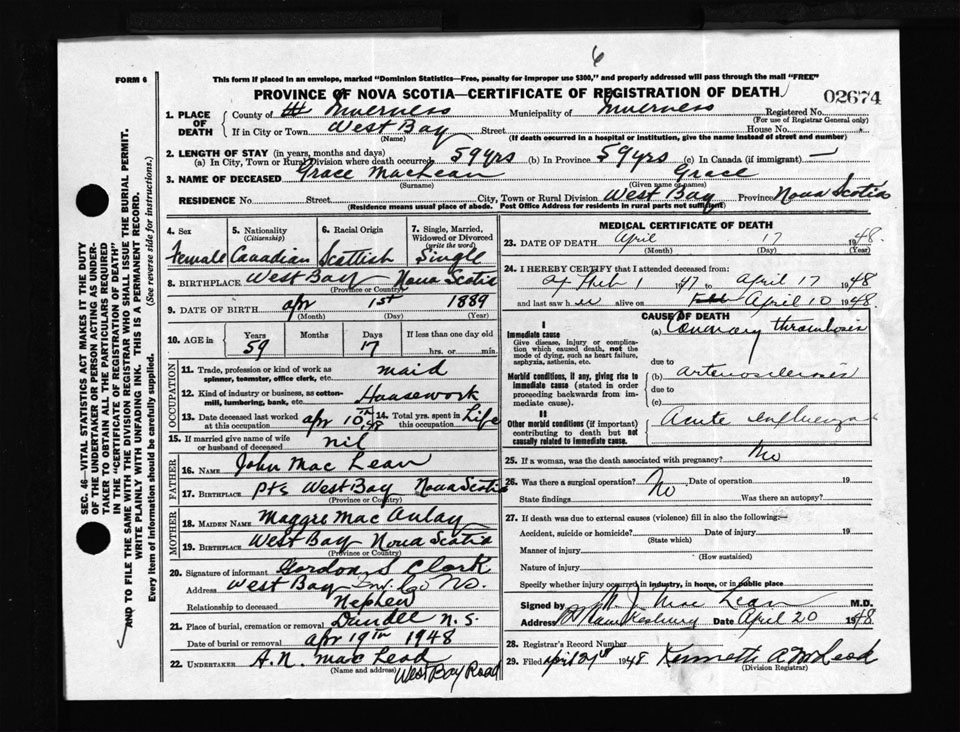 6
FORM 6
This form if placed in an envelope, marked "Dominion Statistics—Free, penalty for improper use $300," and properly addressed will pass through the mail "FREE"
PROVINCE OF NOVA SCOTIA—CERTIFICATE OF REGISTRATION OF DEATH
02674
SEC. 46—VITAL STATISTICS ACT MAKES IT THE DUTY
OF THE UNDERTAKER OR PERSON ACTING AS UNDER-
TAKER TO OBTAIN ALL THE PARTICULARS REQUIRED
IN THE "CERTIFICATE OF REGISTRATION OF DEATH"
AND TO FILE THE SAME WITH THE DIVISION REGISTRAR WHO SHALL ISSUE THE BURIAL PERMIT.
WRITE PLAINLY WITH UNFADING INK. THIS IS A PERMANENT RECORD.
Every item of information should be carefully supplied. (See reverse side for instructions.)
1. PLACE OF DEATH
County of Inverness Municipality of Inverness Registered No.
(For use of Registrar General only)
If in City or Town West Bay Street House No.
(Name) (If death occurred in a hospital or institution, give the name instead of street and number)
2. LENGTH OF STAY (in years, months and days)
(a) In City, Town or Rural Division where death occurred 59 yrs (b) In Province 59 yrs (c) In Canada (if immigrant) —
3. NAME OF DECEASED Grace MacLean Grace
(Surname) (Given name or names)
RESIDENCE No. Street City, Town or Rural Division West Bay Province Nova Scotia
(Residence means usual place of abode. Post Office Address for residents in rural parts not sufficient)
4. Sex
Female
5. Nationality
(Citizenship)
Canadian
6. Racial Origin
Scottish
7. Single, Married,
Widowed or Divorced
(write the word)
Single
8. BIRTHPLACE West Bay Nova Scotia
(Province or Country)
9. DATE OF BIRTH Apr 1st 1889
(Month) (Day) (Year)
10. AGE in
Years
59
Months
Days
17
If less than one day old
hrs. or min.
OCCUPATION
11. Trade, profession or kind of work as
spinner, teamster, office clerk, etc. maid
12. Kind of industry or business, as cotton-
mill, lumbering, bank, etc. Housework
13. Date deceased last worked
at this occupation Apr 10th 48
14. Total yrs. spent in
this occupation Life
15. If married give name of wife
or husband of deceased nil
FATHER
16. NAME John Mac Lean
17. BIRTHPLACE West Bay Nova Scotia
(Province or Country)
MOTHER
18. MAIDEN NAME Maggie Mac Aulay
19. BIRTHPLACE West Bay Nova Scotia
(Province or Country)
20. Signature of informant Gordon S Clark
Address West Bay Inv. Co N.S.
Relationship to deceased Nephew
21. Place of burial, cremation or removal Dundee N.S.
Date of burial or removal Apr 19th 1948
22. UNDERTAKER A.N. Mac Leod
(Name and address) West Bay Road
MEDICAL CERTIFICATE OF DEATH
23. DATE OF DEATH April 17 1948.
(Month) (Day) (Year)
24. I HEREBY CERTIFY that I attended deceased from:
1 1947 to April 17 1948
and last saw her alive on April 10 1948.
CAUSE OF DEATH
I
Immediate cause
Give disease, injury or complica-
tion which caused death, not the
mode of dying, such as heart failure,
asphyxia, asthenia, etc.
(a) Coronary thrombosis
due to
Morbid conditions, if any, giving rise to
immediate cause (stated in order
proceeding backwards from im-
mediate cause).
(b) arteriosclerosis
due to
(c)
II
Other morbid conditions (if important)
contributing to death but not
causally related to immediate cause.
Acute influenza
25. If a woman, was the death associated with pregnancy? No
26. Was there a surgical operation? No Date of operation 19
State findings Was there an autopsy?
27. If death was due to external causes (violence) fill in also the following:—
Accident, suicide or homicide? Date of injury 19
(State which)
Manner of injury
(How sustained)
Nature of injury
Specify whether injury occurred in industry, in home, or in public place
Signed by Mac Lean M.D.
Address Date April 20 1948
28. Registrar's Record Number
29. Filed April 1948 Kenneth A McLeod
(Division Registrar)